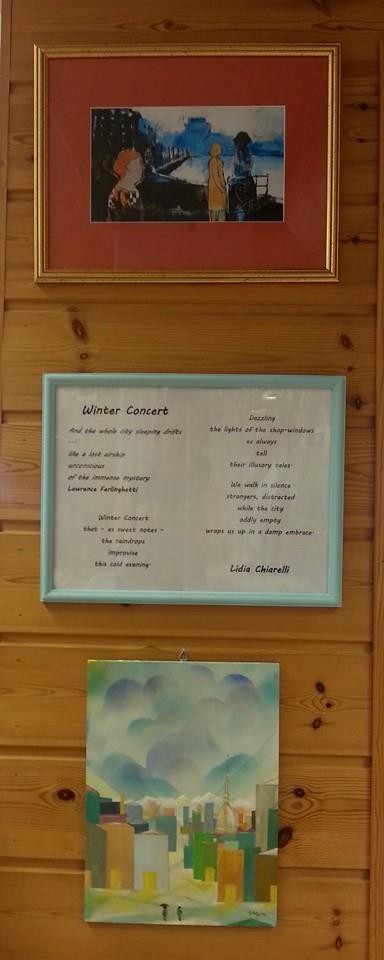 Winter Concert
And the whole city sleeping drifts
...
like a lost airship
unconscious
of the immense mystery
Lawrence Ferlinghetti
Winter Concert
that - as sweet notes -
the raindrops
improvise
this cold evening.
Dazzling
the lights of the shop-windows
as always
tell
their illusory tales.
We walk in silence
strangers, distracted
while the city
oddly empty
wraps us up in a damp embrace.
Lidia Chiarelli